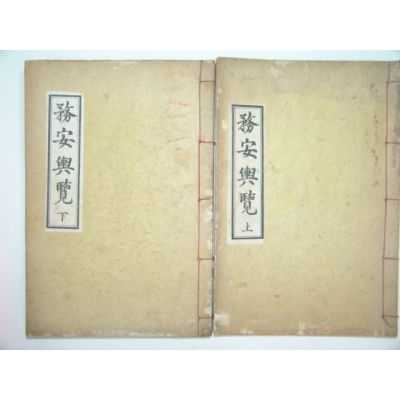 務安輿覽 上
務安輿覽 下